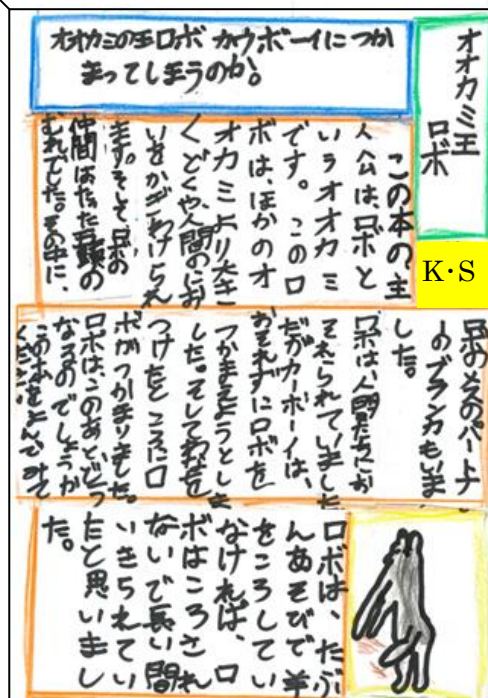 オオカミ王
ロボ
オオカミの王ロボカウボーイにつか
まってしまうのか。
K·S
この本の主
人公は、ロボと
いうオオカミ
です。このロ
ボは、ほかのオ
オカミより大き
くどくや人間のにお
いをかぎわけられ
ます。そしてロボの
仲間はたった五頭の
むれでした。その中に、
ロボのメスのパートナ
ーのブランカもいま
した。
ロボは、人間たちにお
それられていました
だがカーボーイは、
おそれずにロボを
つかまえようとしま
した。そしてわなを
つけたところにロ
ボがつかまりました。
ロボは、このあと、どう
なるのでしょうか
この本をよんでみて
ください。
ロボは、たぶ
んあそびで羊
をころしてい
なければ、ロ
ボはころされ
ないで長い間
いきられてい
たと思いまし
た。